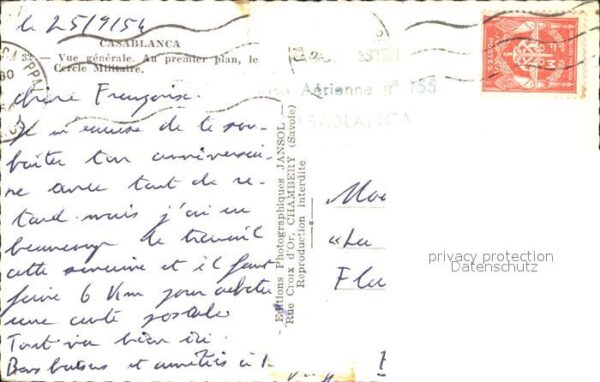 le 25/9/54
CASABLANCA
32 — Vue générale. Au premier plan, le
Cercle Militaire.
Chère Françoise.
Je m'excuse de te sou-
haiter ton anniversai-
re avec tant de re-
tard mais j'ai eu
beaucoup de travail
cette semaine et il faut
faire 6 Km pour acheter
une carte postale
Tout va bien ici.
Bons baisers et amitiés à
Editions Photographiques JANSOL —
Rue Croix d'Or, CHAMBÉRY (Savoie)
Reproduction interdite
Base Aérienne n° 155
CASABLANCA
POSTES
F M
Moe
"La
Fla
privacy protection
Datenschutz